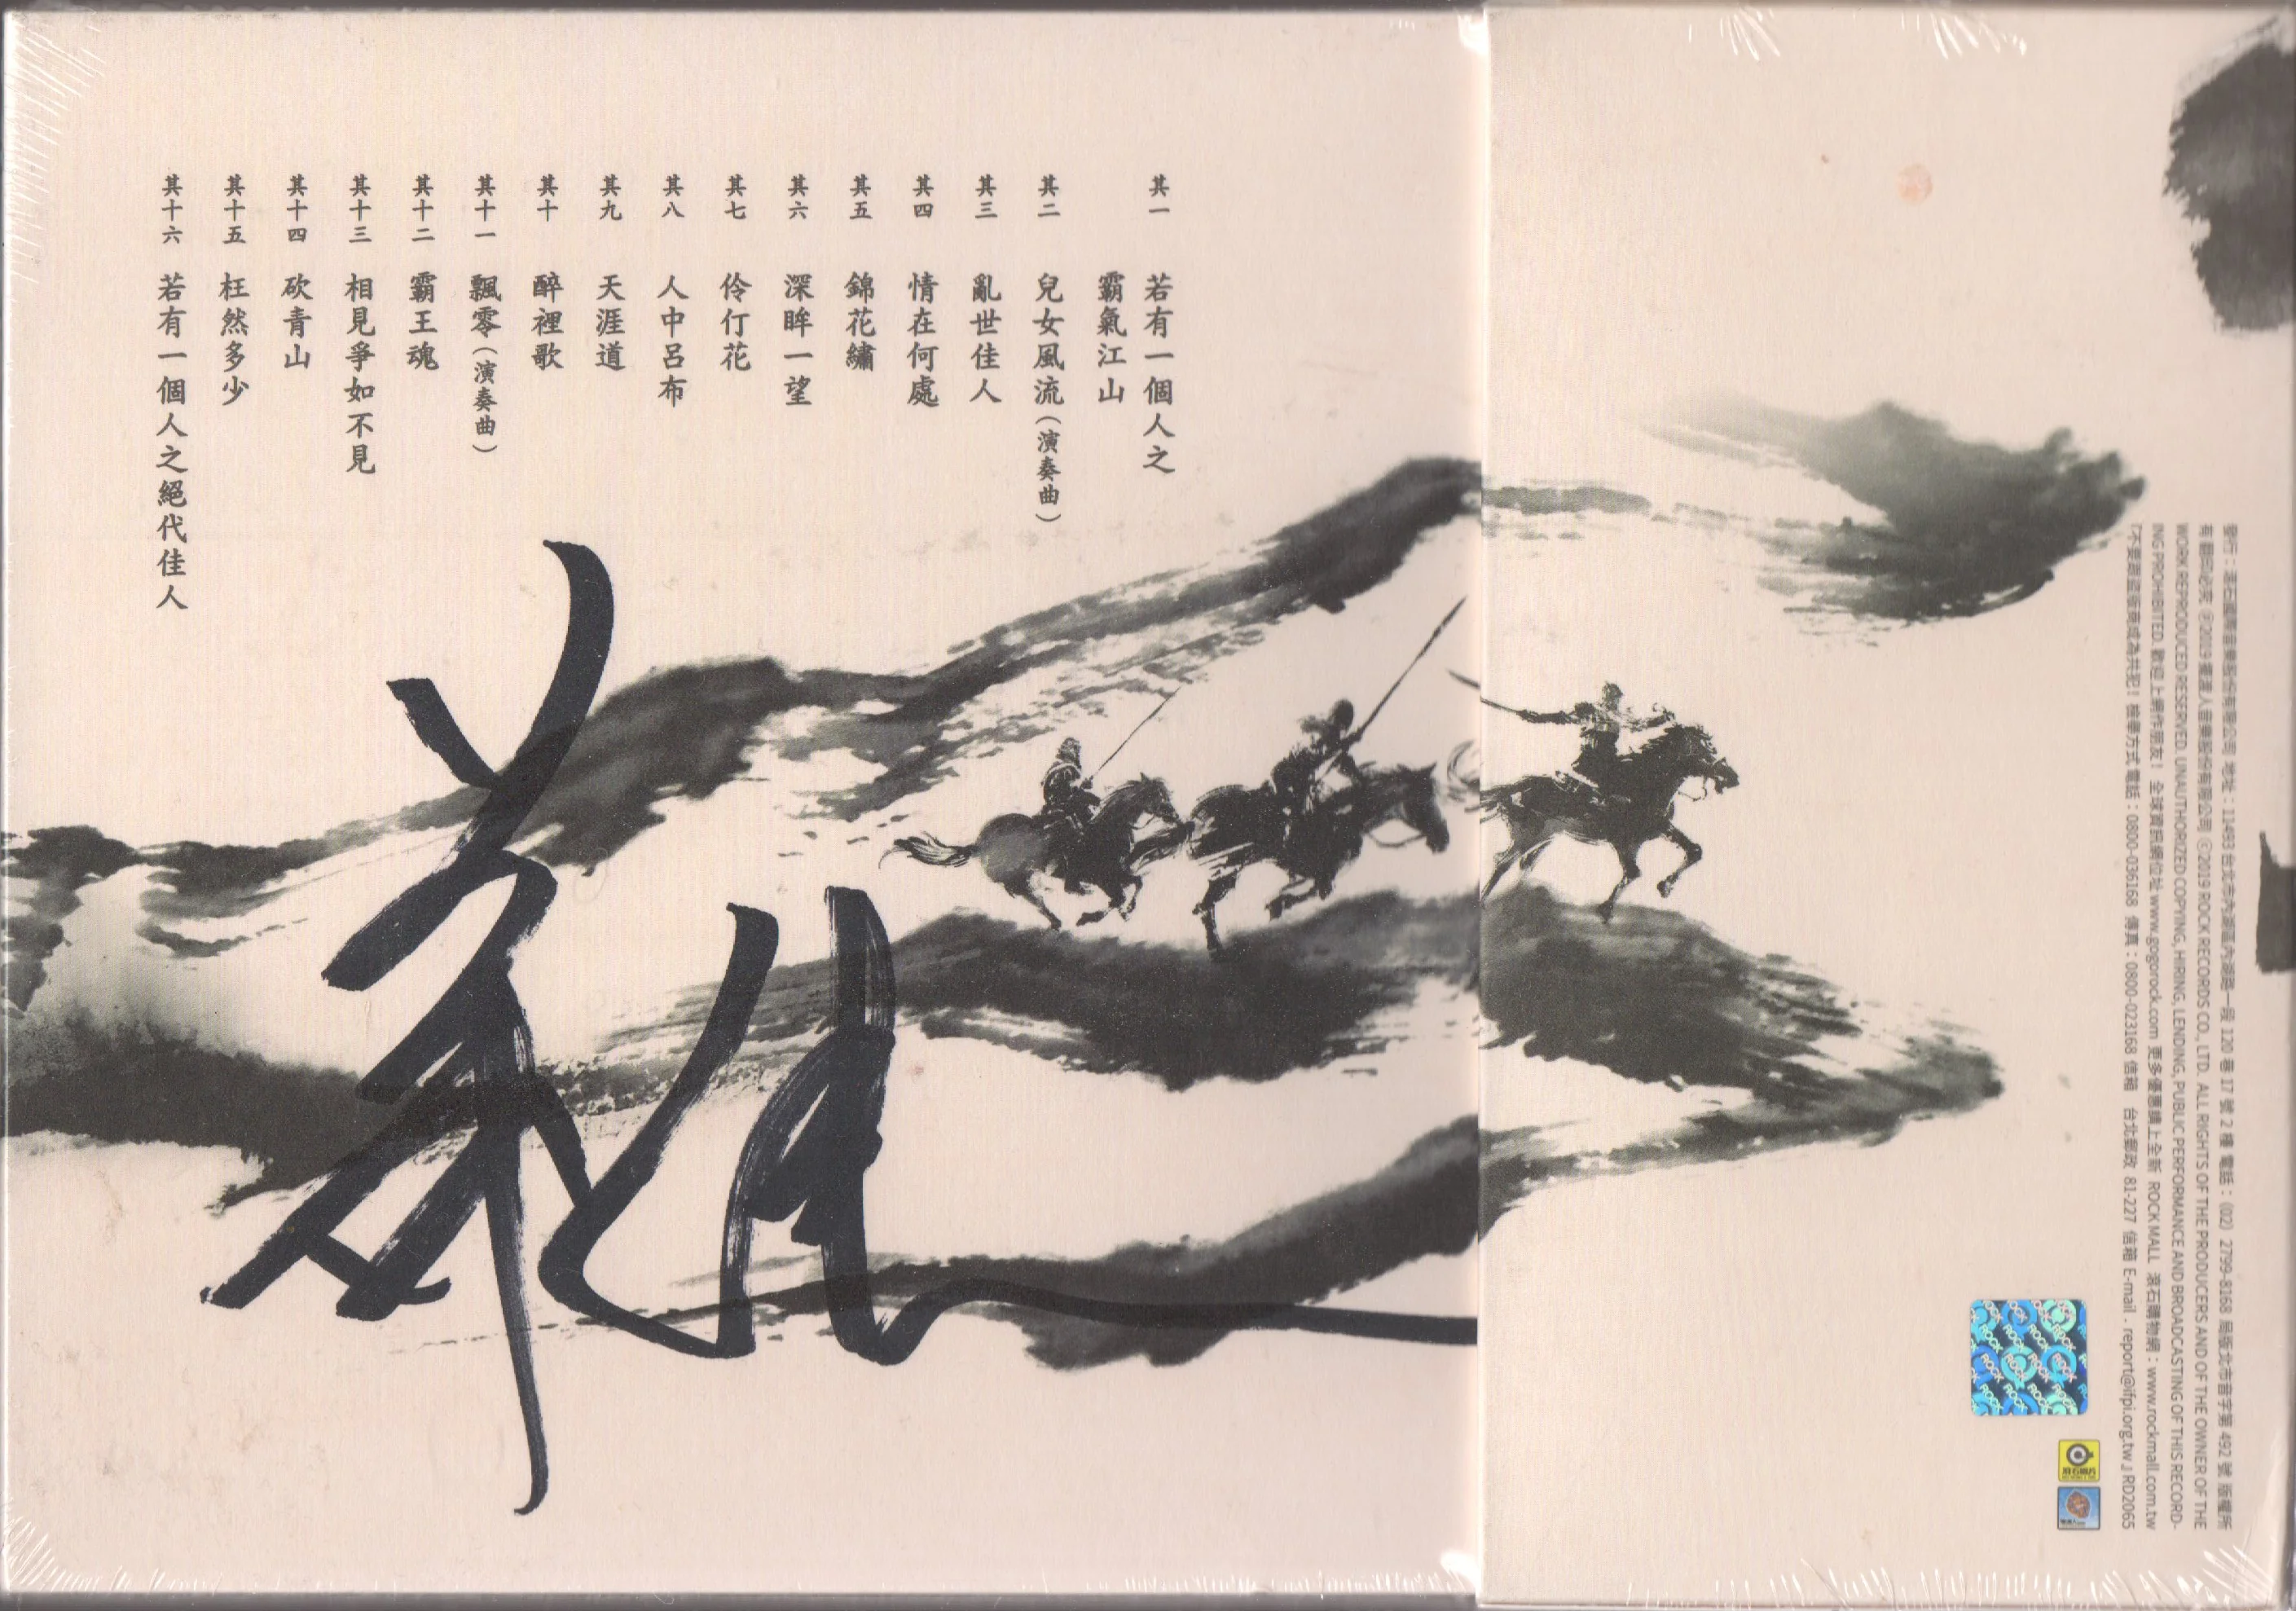 其一 若有一個人之
霸氣江山
其二 兒女風流（演奏曲）
其三 亂世佳人
其四 情在何處
其五 錦花繡
其六 深眸一望
其七 伶仃花
其八 人中呂布
其九 天涯道
其十 醉裡歌
其十一 飄零（演奏曲）
其十二 霸王魂
其十三 相見爭如不見
其十四 砍青山
其十五 枉然多少
其十六 若有一個人之絕代佳人
發行：滾石國際音樂股份有限公司 地址：11493 台北市內湖區內湖路一段 120 巷 17 號 2 樓 電話：(02) 2799-8168 局版北市音字第 492 號 版權所
有 翻印必究 Ⓟ2019 擺渡人音樂股份有限公司 ⓒ2019 ROCK RECORDS CO., LTD. ALL RIGHTS OF THE PRODUCERS AND OF THE OWNER OF THE
WORK REPRODUCED RESERVED. UNAUTHORIZED COPYING, HIRING, LENDING, PUBLIC PERFORMANCE AND BROADCASTING OF THIS RECORD-
ING PROHIBITED. 歡迎上網作朋友！ 全球資訊網位址 www.gogorock.com 更多優惠請上全新 ROCK MALL 滾石購物網：www.rockmall.com.tw
『不要跟盜版商成為共犯！檢舉方式電話：0800-036168 傳真：0800-023168 信箱 台北郵政 81-227 信箱 E-mail . report@ifpi.org.tw』RD2065
ROCK
滾石唱片